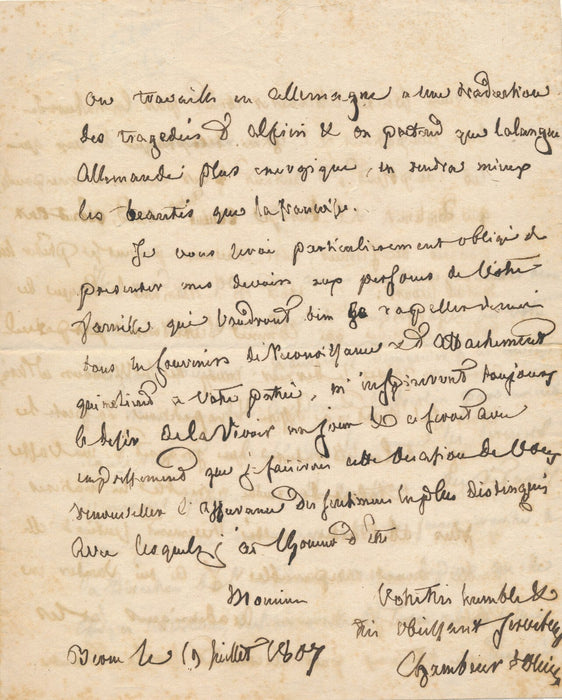 on travaille en allemagne a une traduction
des tragedies d'alfieri & on pretend que la langue
Allemande plus energique, en rendra mieux
les beautés que la françoise.
Je vous serai particulierement obligé de
presenter mes devoirs aux personnes de Votre
famille qui voudront bien se rappeller de moi
tous les souvenirs de Reconnoissance & d'attachement
qui me lient a votre patrie, m'inspireront toujours
le desir de la Revoir un jour & ce seroit avec
empressement que je saisirois cette occasion de Vous
renouveller l'assurance des sentimens les plus distingués
avec lesquels j'ai l'honneur d'être
Monsieur
Votre très humble &
très obéissant serviteur
le 19 juillet 1807
Chambrier d'Oleires